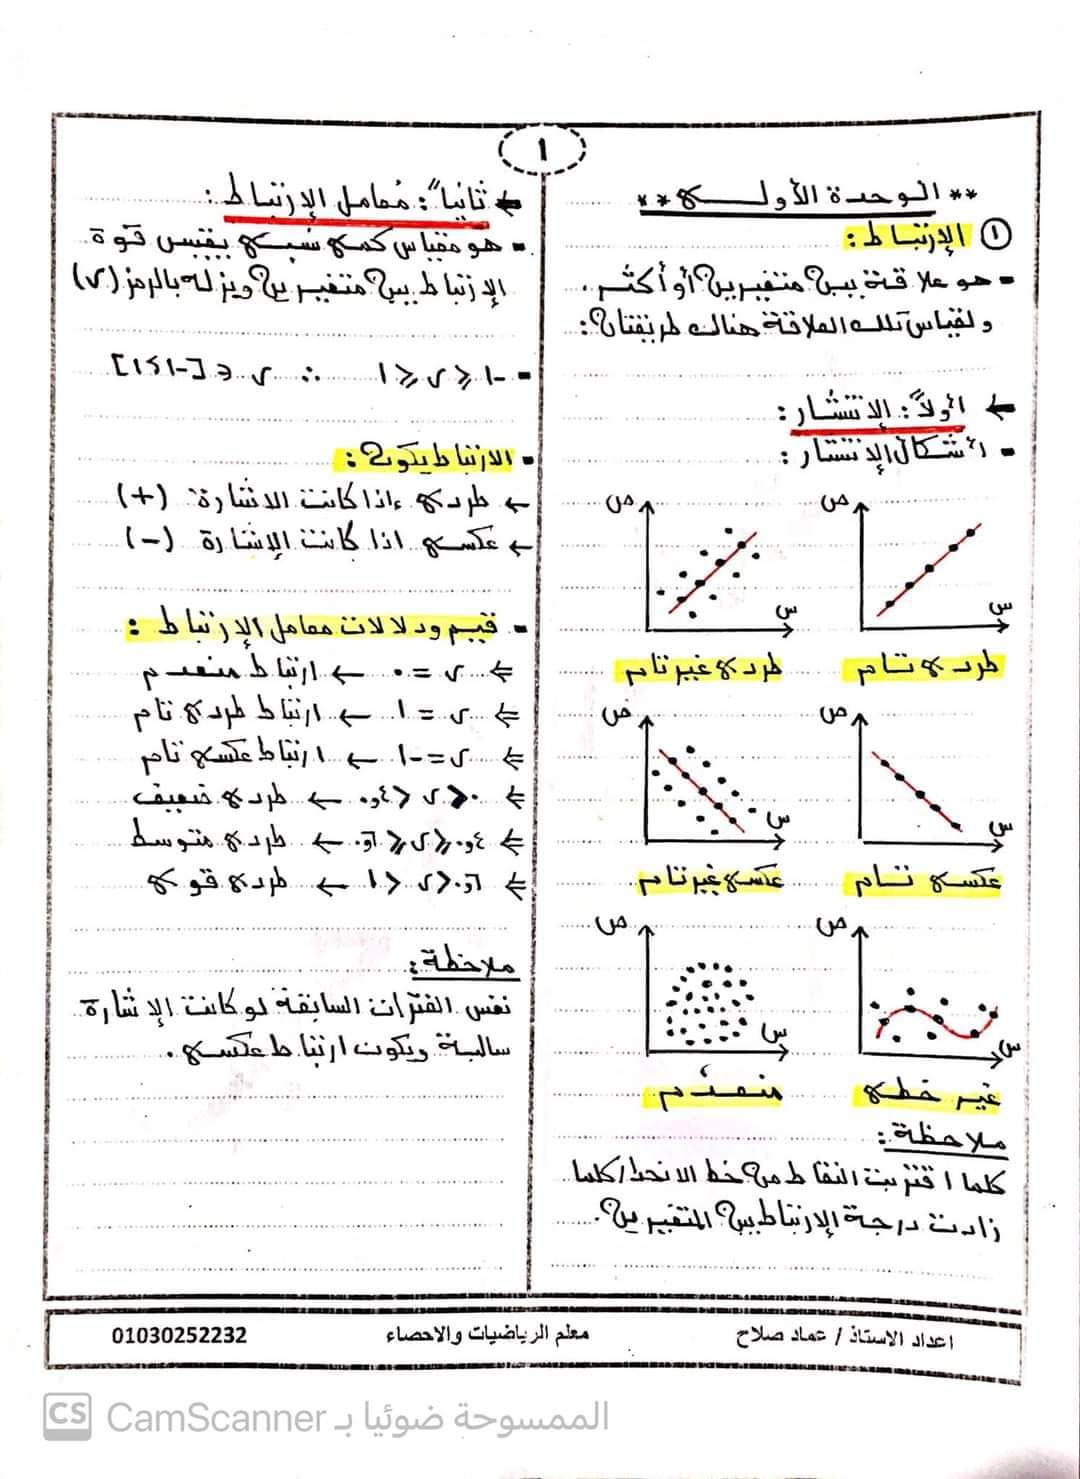 ١
** الوحدة الأولى **
١ الإرتباط:
- هو علاقة بين متغيرين أو أكثر،
ولقياس تلك العلاقة هناك طريقتان:
← أولاً: الإنتشار:
- أشكال الإنتشار:
ص
س
طردى تام
ص
س
طردى غير تام
ص
س
عكسى تام
ص
س
عكسى غير تام
ص
س
غير خطى
ص
س
منعدم
ملاحظة:
كلما اقتربت النقاط من خط الانحدار كلما
زادت درجة الإرتباط بين المتغيرين.
← ثانياً: مُعامل الإرتباط:
- هو مقياس كمى نسبى يقيس قوة
الإرتباط بين متغيرين ويرمز له بالرمز (ر)
- -١ ≤ ر ≤ ١ ∴ ر ∈ [-١،١]
- الارتباط يكون:
← طردى إذا كانت الاشارة (+)
← عكسى اذا كانت الإشارة (-)
- قيم ودلالات معامل الإرتباط:
⇐ ر = ٠ ← ارتباط منعدم
⇐ ر = ١ ← ارتباط طردى تام
⇐ ر = -١ ← ارتباط عكسى تام
⇐ ٠ < ر < ٤و٠ ← طردى ضعيف
⇐ ٤و٠ ≤ ر ≤ ٦و٠ ← طردى متوسط
⇐ ٦و٠ < ر < ١ ← طردى قوى
ملاحظة:
نفس الفترات السابقة لو كانت الإشارة
سالبة ويكون ارتباط عكسى.
اعداد الاستاذ / عماد صلاح
معلم الرياضيات والاحصاء
01030252232
CS CamScanner الممسوحة ضوئيا بـ